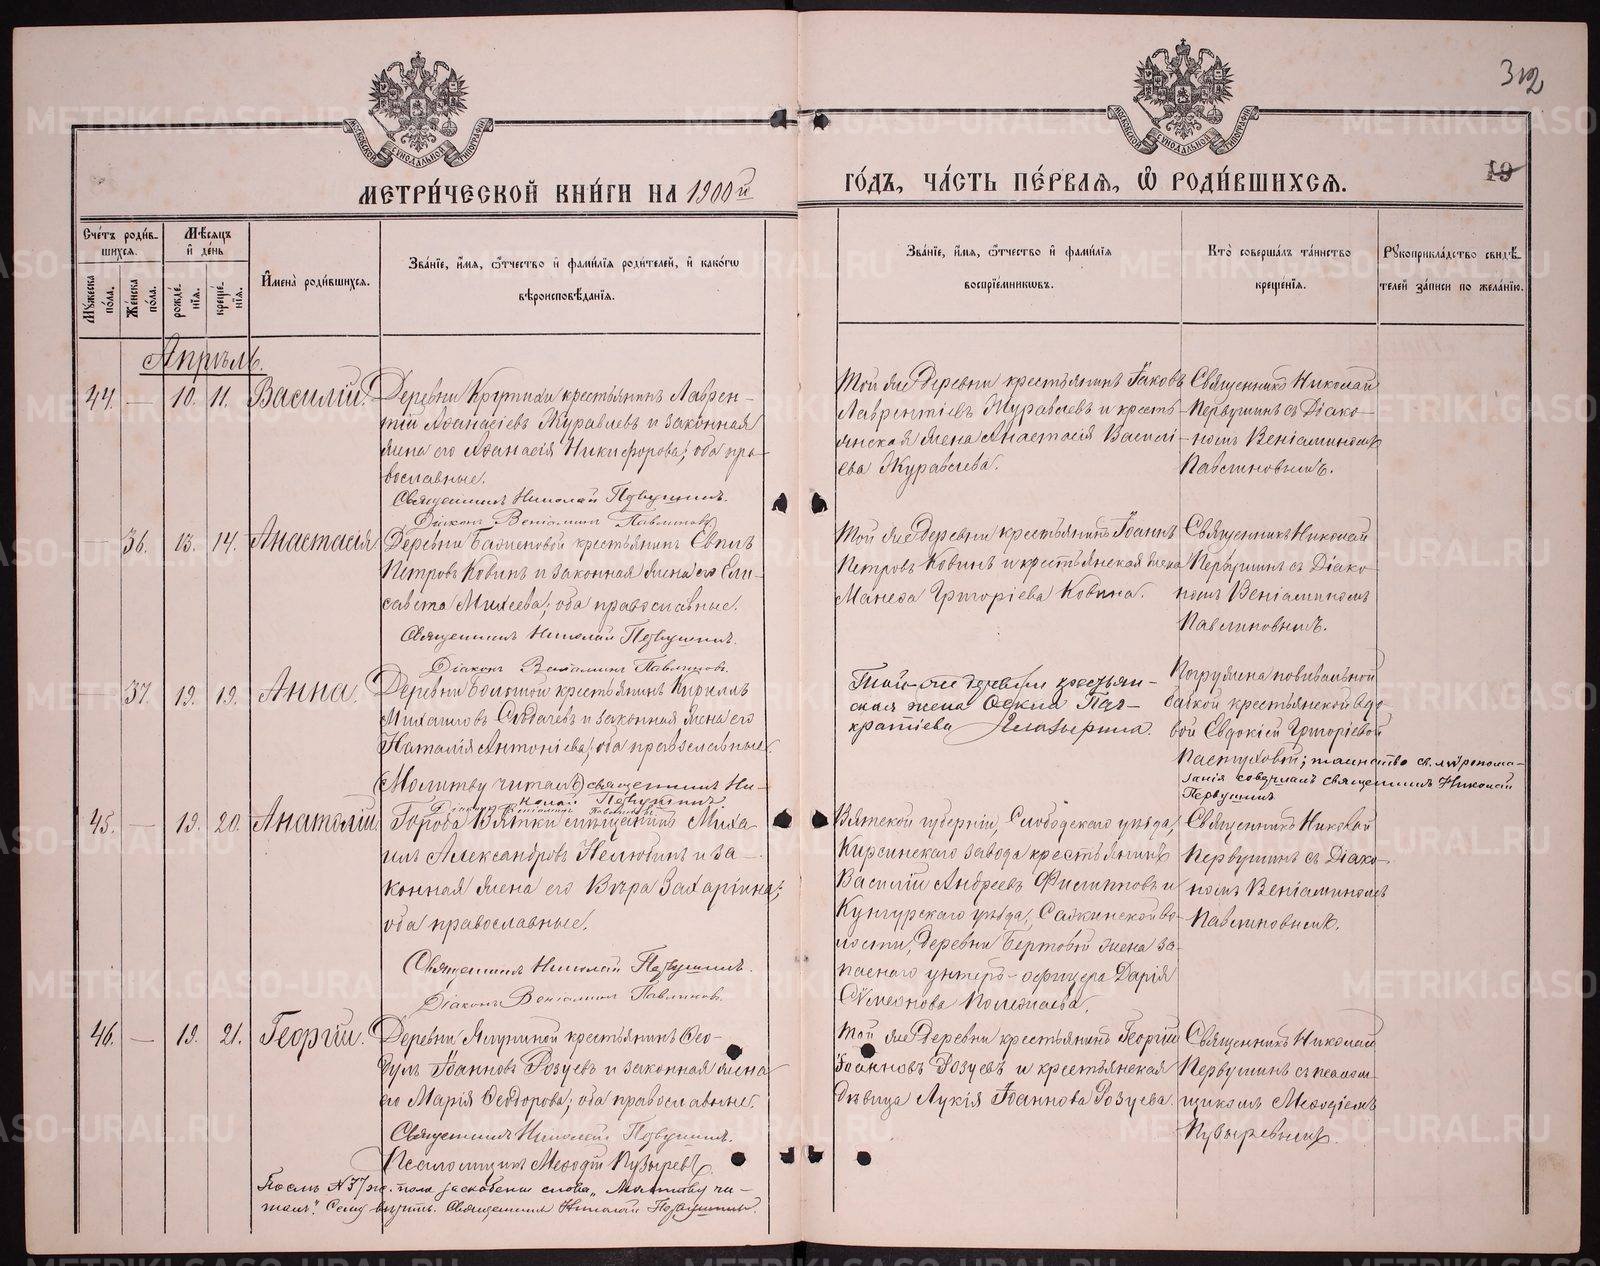 312
19
МЕТРИ́ЧЕСКОЙ КНИ́ГИ НА 1900й
ГО́ДЪ, ЧА́СТЬ ПЕ́РВАѦ, Ѡ҆ РОДИ́ВШИХСѦ.
МОСКОВСКОЙ СѴНОДАЛЬНОЙ ТИПОГРАФІИ
МОСКОВСКОЙ СѴНОДАЛЬНОЙ ТИПОГРАФІИ
Сче́тъ роди́в-
шихся.
Мѣ́сяцъ
и҆ де́нь
Мꙋ́жеска
по́ла.
Же́нска
по́ла.
рожде́-
нїѧ.
креще́-
нїѧ.
И҆мена̀ роди́вшихся.
Зва́нїе, и҆́мѧ, ѻ҆́тчество и҆ фами́лїѧ роди́телей, и҆ како́гѡ
вѣроисповѣ́данїѧ.
Зва́нїе, и҆́мѧ, ѻ҆́тчество и҆ фами́лїѧ
воспрїе́мниковъ.
Кто̀ соверша́лъ та́инство
креще́нїѧ.
Рꙋкоприкла́дство свидѣ́-
телей за́писи по жела́нїю.
Апрѣль.
44. — 10. 11. Василій.
Деревни Крутихи крестьянинъ Лаврен-
тій Аѳанасіевъ Журавлевъ и законная
жена его Аѳанасія Никифорова; оба пра-
вославные.
Священникъ Николай Первушинъ.
Діаконъ Веніаминъ Павлиновъ.
Той же Деревни крестьянинъ Іаковъ
Лаврентіевъ Журавлевъ и кресть-
янская жена Анастасія Василі-
ева Журавлева.
Священникъ Николай
Первушинъ съ Діако-
номъ Веніаминомъ
Павлиновымъ.
— 36. 13. 14. Анастасія
Деревни Баженовой крестьянинъ Евплъ
Петровъ Ковинъ и законная жена его Ели-
савета Михеева; оба православные.
Священникъ Николай Первушинъ.
Діаконъ Веніаминъ Павлиновъ.
Той же Деревни крестьянинъ Іоаннъ
Петровъ Ковинъ и крестьянская жена
Манеѳа Григоріева Ковина.
Священникъ Николай
Первушинъ съ Діако-
номъ Веніаминомъ
Павлиновымъ.
— 37. 19. 19. Анна.
Деревни Большой крестьянинъ Кириллъ
Михаиловъ и законная жена его
Наталія Антоніева; оба православные.
(Молитву читалъ) священникъ Ни-
колай Первушинъ.
Діаконъ Веніаминъ Павлиновъ.
Той же деревни крестьян-
ская жена Пан-
кратіева
Погружена повивальной
бабкой крестьянской вдо-
вой Евдокіей Григоріевой
Пастуховой; таинство св. мѵропома-
занія совершалъ священникъ Николай
Первушинъ
45. — 19. 20. Анатолій.
Города Вятки мѣщанинъ Миха-
илъ Александровъ Нелюбинъ и за-
конная жена его Вѣра Захаріина;
оба православные.
Священникъ Николай Первушинъ.
Діаконъ Веніаминъ Павлиновъ.
Вятской губерніи, Слободскаго уѣзда,
Кирсинскаго завода крестьянинъ
Василій Андреевъ Филипповъ и
Кунгурскаго уѣзда, Сажинской во-
лости, деревни Бертовой жена за-
паснаго унтеръ-офицера Дарія
Сѵмеонова Полежаева.
Священникъ Николай
Первушинъ съ Діако-
номъ Веніаминомъ
Павлиновымъ.
46. — 19. 21. Георгій.
Деревни крестьянинъ Ѳео-
дулъ Іоанновъ Розуевъ и законная жена
его Марія Ѳеодорова; оба православные.
Священникъ Николай Первушинъ.
Псаломщикъ Меѳодій Пузыревъ.
Той же Деревни крестьянинъ Георгій
Іоанновъ Розуевъ и крестьянская
дѣвица Лукія Іоаннова Розуева.
Священникъ Николай
Первушинъ съ псалом-
щикомъ Меѳодіемъ
Пузыревымъ.
Въ № 37 ж. пола заскоблены слова „Молитву чи-
талъ“. Сему вѣрить. Священникъ Николай Первушинъ.
METRIKI.GASO-URAL.RU